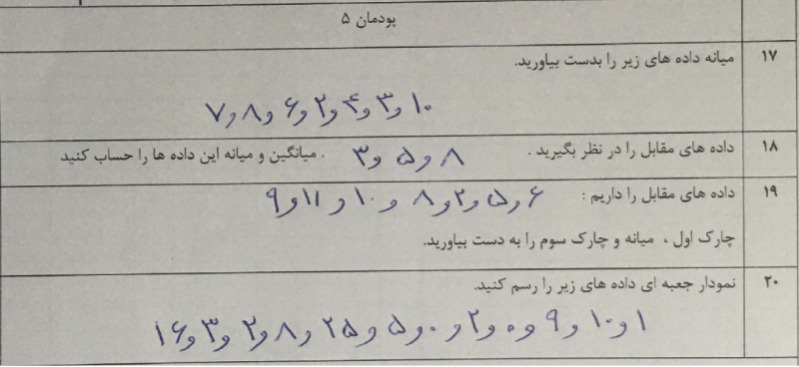 پودمان ۵
۱۷ میانه داده های زیر را بدست بیاورید.
۱۰ و ۳ و ۴ و ۲ و ۶ و ۸ و ۷
۱۸ داده های مقابل را در نظر بگیرید . ۸ و ۵ و ۳ . میانگین و میانه این داده ها را حساب کنید
۱۹ داده های مقابل را داریم : ۶ و ۵ و ۲ و ۸ و ۱۰ و ۱۱ و ۹
چارک اول ، میانه و چارک سوم را به دست بیاورید.
۲۰ نمودار جعبه ای داده های زیر را رسم کنید.
۱ و ۱۰ و ۹ و و ۲ و ۰ و ۵ و ۲۵ و ۸ و ۲ و ۳ و ۱۶